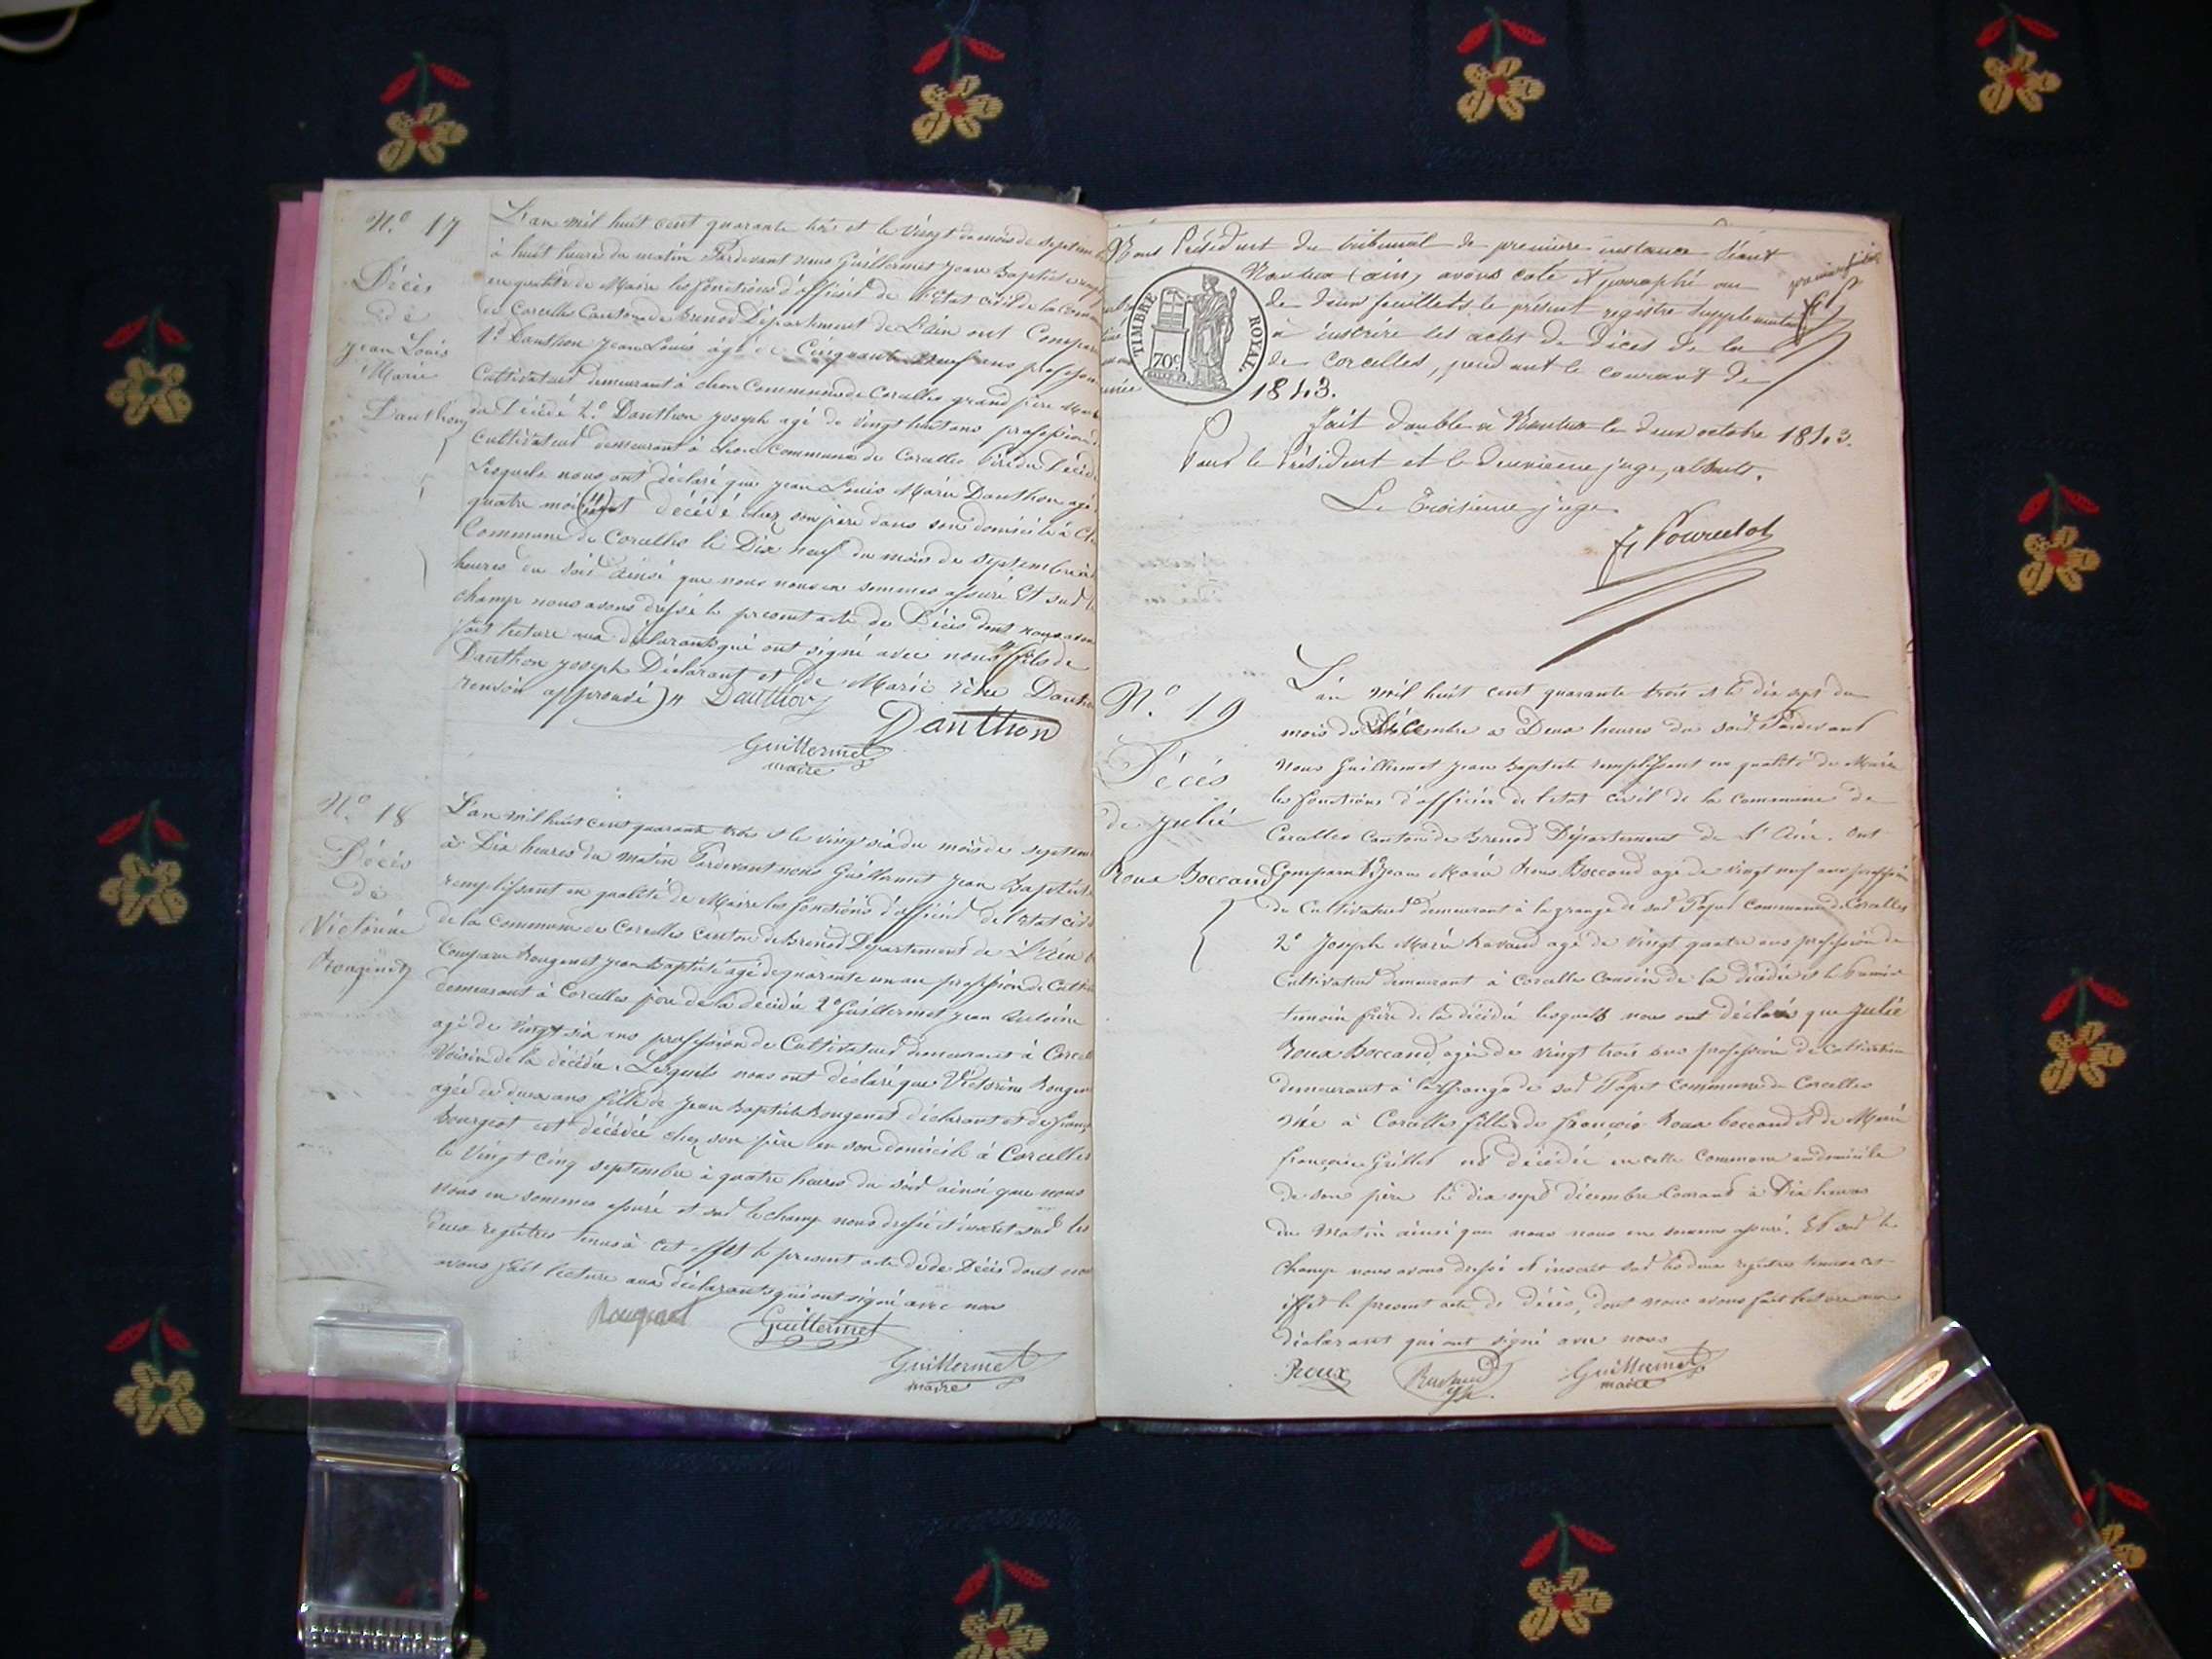 N.o 17
Décès
de
Jean Louis
Marie
Danthon
L'an mil huit cent quarante trois et le vingt du mois de septem
à huit heures du matin Pardevant nous Guillermet Jean Baptiste rempl
en qualité de Maire les fonctions d'officier de l'Etat civil de la Comm
de Corcelles Canton de Brenod Département de L'ain ont Compar
1o Danthon Jean Louis âgé de Cinquante neuf ans profession
Cultivateur demeurant à chon Commune de Corcelles grand père
du décédé 2o Danthon Joseph agé de vingt huit ans profession
cultivateur demeurant à chon Commune de Corcelles Père du décéd
Lesquels nous ont déclaré que Jean Louis Marie Danthon agé
quatre mois est décédé chez son père dans son domicile à Ch
Commune de Corcelles le Dix neuf du mois de septembre
heures du soir ainsi que nous nous en sommes assuré Et sur l
champ nous avons dressé le présent acte de Décès dont nous avon
fait lecture aux déclarants qui ont signé avec nous (fils de
Danthon Joseph Déclarant et de Marie Danth
renvoi approuvé) Danthon
Danthon
Guillermet
maire
N.o 18
Décès
de
Victorine
Rougemet
L'an mil huit cent quarante trois et le vingt six du mois de septem
à Dix heures du matin Pardevant nous Guillermet Jean Baptiste
remplissant en qualité de Maire les fonctions d'officier de l'Etat civil
de la Commune de Corcelles Canton de Brenod Département de L'Ain
Comparu Rougemet Jean Baptiste agé de quarante un an profession de Cultiv
demeurant à Corcelles père de la décédée 2o Guillermet Jean Antoine
agé de vingt six ans profession de Cultivateur demeurant à Corcel
Voisin de la décédée. Lesquels nous ont déclaré que Victorine Rougem
agée de deux ans fille de Jean Baptiste Rougemet déclarant et de franç
Bourgeot est décédée chez son père en son domicile à Corcelles
le vingt cinq septembre à quatre heures du soir ainsi que nous
nous en sommes assuré et sur le champ nous dressé et inscrit sur les
deux registres tenus à cet effet le présent acte de de Décès dont nou
avons fait lecture aux déclarants qui ont signé avec nous
Guillermet
Guillermet
maire
Nous Président du tribunal de première instance séant
Nantua (ain) avons coté et paraphé au
de deux feuillets le présent registre supplémentaire
à inscrire les actes de Décès de la
de Corcelles, pendant le courant de
1843.
premier
TIMBRE ROYAL
70c
Fait double à Nantua le deux octobre 1843.
Pour le Président et le deuxième juge, absents.
Le Troisième juge
N.o 19
Décés
de Julie
Roux Boccand
L'an mil huit cent quarante trois et le dix sept du
mois de Décembre a Deux heures du soir Pardevant
nous Guillermet Jean Baptiste remplissant en qualité de Maire
les fonctions d'officier de l'etat civil de la Commune de
Corcelles Canton de Brenod Département de l'Ain. Ont
Comparu 1o Jean Marie Roux Boccand age de vingt neuf ans profession
de Cultivateur demeurant à la grange de sur Popet Commune de Corcelles
2o Joseph Marie Ravaud agé de vingt quatre ans profession de
Cultivateur demeurant à Corcelle Cousin de la décédée et le Premier
témoin frère de la décédée lesquels nous ont déclarés que Julie
Roux Boccand agée de vingt trois ans profession de Cultivatrice
demeurant à la Grange de sur Popet Commune de Corcelles
née à Corcelles fille de françois Roux boccand et de Marie
françoise Grillet est décédée en cette Commune au domicile
de son père le dix sept décembre Courant à Dix heures
du Matin ainsi que nous nous en sommes assuré. Et sur le
champ nous avons dressé et inscrit sur les deux régistres tenus a cet
effet le présent acte de décès, dont nous avons fait lecture aux
déclarant qui ont signé avec nous
Roux
Guillermet
maire